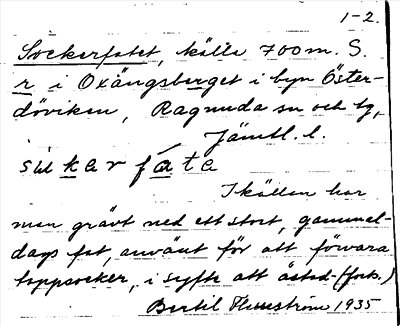 1-2.
Sockerfatet, källa 700 m. S.
r i Oxängsberget i byn Öster-
döviken, Ragunda sn och tg,
Jämtl. l.
sukerfáte
I källan har
man grävt ned ett stort, gammal-
dags fat, använt för att förvara
toppsocker, i syfte att åstad- (forts.)
Bertil Flemström 1935